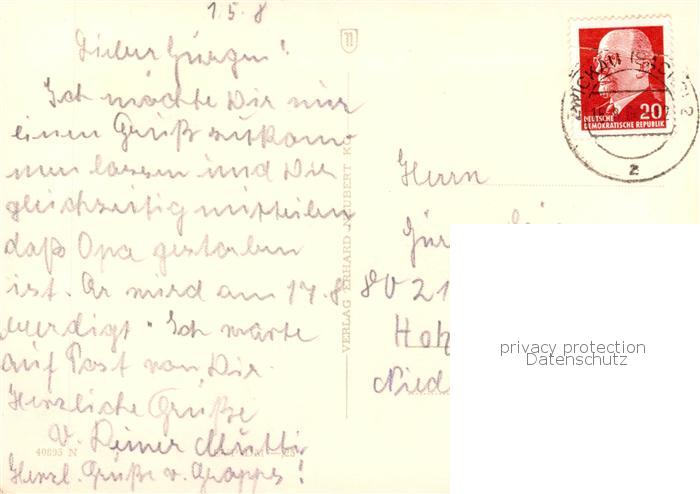 15.8
Lieber Jürgen!
Ich möchte Dir nur
einen Gruß zukom-
men lassen und Dir
gleichzeitig mitteilen
daß Opa gestorben
ist. Er wird am 17.8
beerdigt. Ich warte
auf Post von Dir.
Herzliche Grüße
v. Deiner Mutti
Herzl. Grüße v.
40895 N
VERLAG ERHARD NEUBERT KG
DEUTSCHE
DEMOKRATISCHE REPUBLIK
20
ZWICKAU
2
z
Herrn
8021
Hoh
Nied
privacy protection
Datenschutz